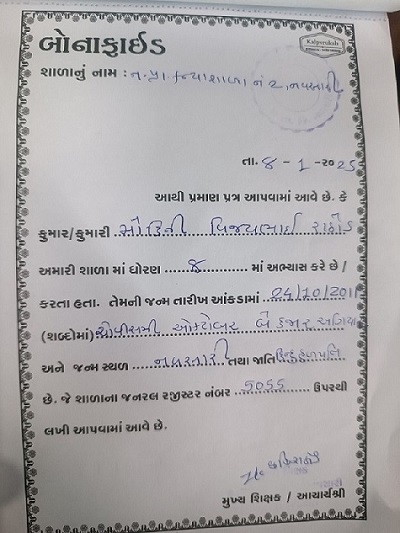 બોનાફાઈડ
Kalpvruksh
શાળાનું નામ : ન.પ્રા. કન્યાશાળા નં ૨, નવસારી
તા. ૪ - 1 -૨૦25
આથી પ્રમાણ પત્ર આપવામાં આવે છે. કે
કુમાર/કુમારી વિજયભાઈ રાઠોડ
અમારી શાળા માં ધોરણ ........ ૪ ........ માં અભ્યાસ કરે છે /
કરતા હતા. તેમની જન્મ તારીખ આંકડામાં 24/10/2011
(શબ્દોમાં) ચોવીસમી ઓક્ટોબર બે હજાર અગિયાર
અને જન્મ સ્થળ ...... નવસારી તથા જાતિ હિન્દુ હળપતિ
છે. જે શાળાના જનરલ રજીસ્ટર નંબર ...5055... ઉપરથી
લખી આપવામાં આવે છે.
મુખ્ય શિક્ષક / આચાર્યશ્રી